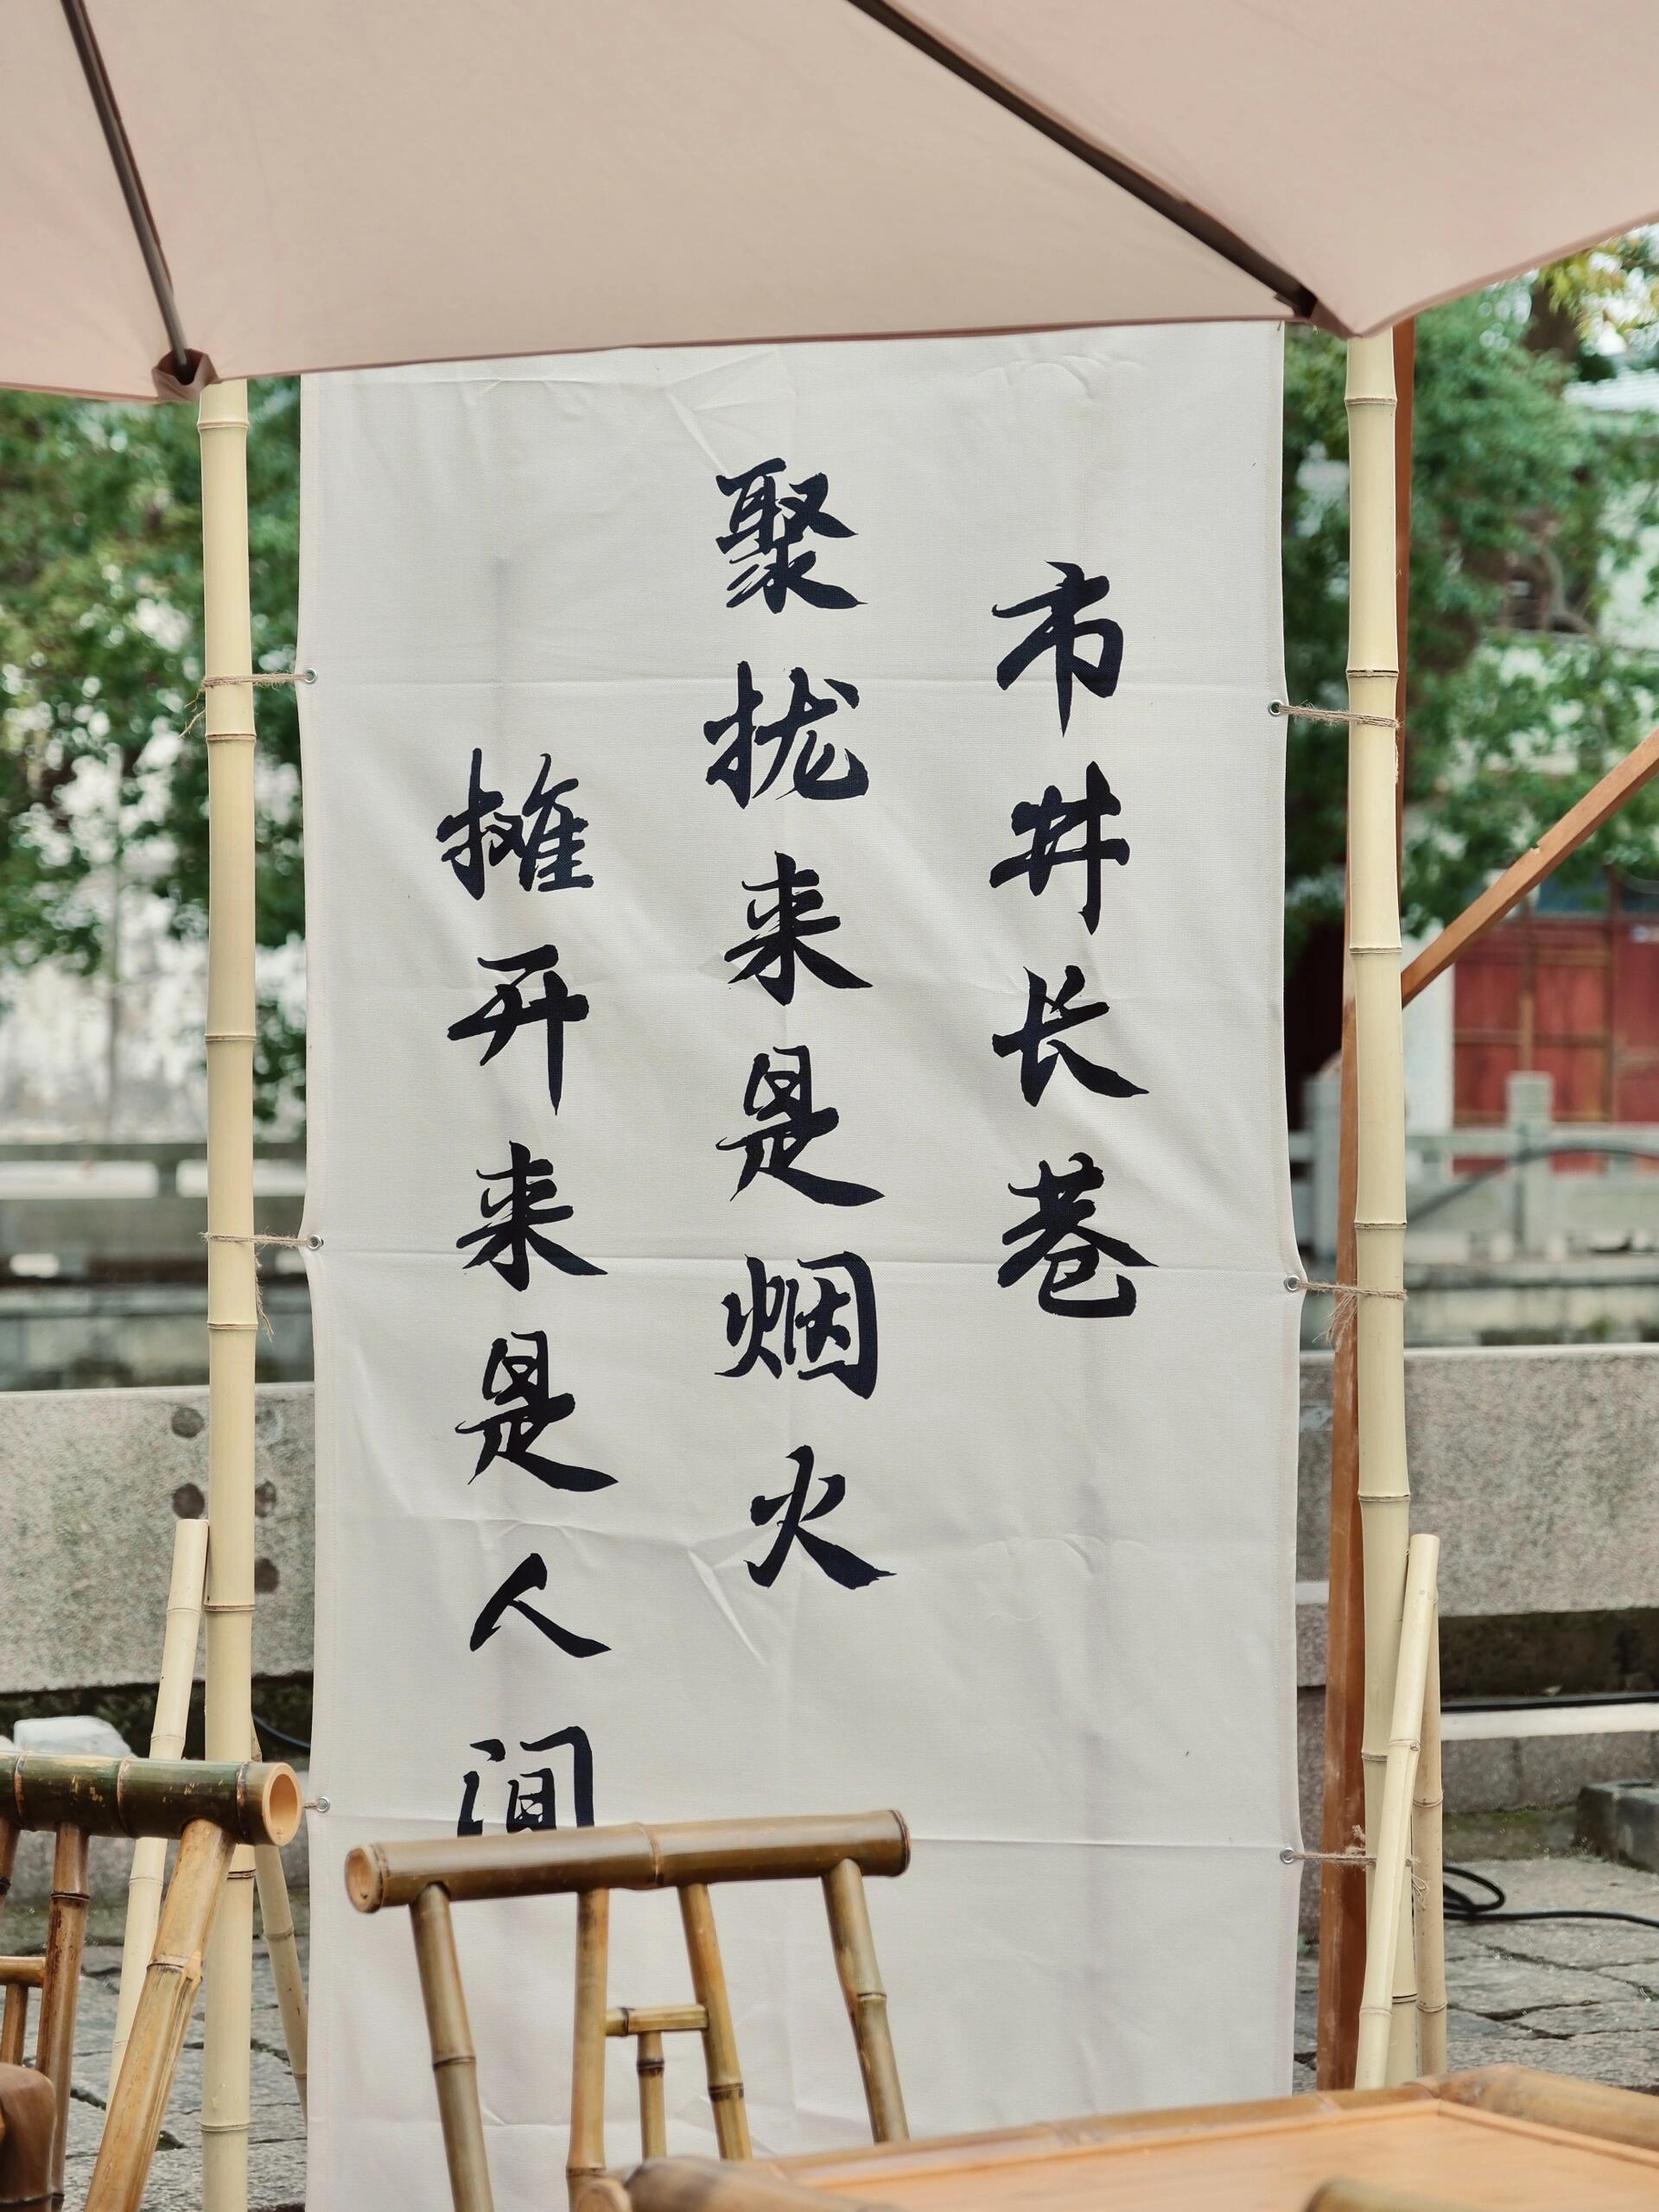 市井长巷
聚拢来是烟火
摊开来是人间